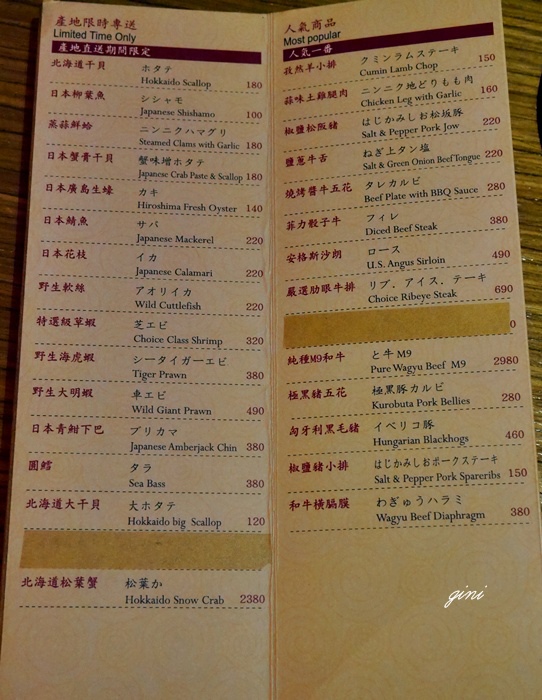 產地限時專送
Limited Time Only
產地直送期間限定
北海道干貝 ホタテ
Hokkaido Scallop 180
日本柳葉魚 シシャモ
Japanese Shishamo 100
蒸蒜鮮蛤 ニンニクハマグリ
Steamed Clams with Garlic 180
日本蟹膏干貝 蟹味增ホタテ
Japanese Crab Paste & Scallop 180
日本廣島生蠔 カキ
Hiroshima Fresh Oyster 140
日本鯖魚 サバ
Japanese Mackerel 220
日本花枝 イカ
Japanese Calamari 220
野生軟絲 アオリイカ
Wild Cuttlefish 220
特選級草蝦 芝エビ
Choice Class Shrimp 320
野生海虎蝦 シータイガーエビ
Tiger Prawn 380
野生大明蝦 車エビ
Wild Giant Prawn 490
日本青魽下巴 ブリカマ
Japanese Amberjack Chin 380
圓鱈 タラ
Sea Bass 380
北海道大干貝 大ホタテ
Hokkaido big Scallop 120
北海道松葉蟹 松葉か
Hokkaido Snow Crab 2380
人氣商品
Most popular
人氣一番
孜然羊小排 クミンラムステーキ
Cumin Lamb Chop 150
蒜味土雞腿肉 ニンニク地どりもも肉
Chicken Leg with Garlic 160
椒鹽松阪豬 はじかみしお松坂豚
Salt & Pepper Pork Jow 220
鹽蔥牛舌 ねぎ上タン塩
Salt & Green Onion Beef Tongue 220
燒烤醬牛五花 タレカルビ
Beef Plate with BBQ Sauce 280
菲力骰子牛 フィレ
Diced Beef Steak 380
安格斯沙朗 ロース
U.S. Angus Sirloin 490
嚴選肋眼牛排 リブ．アイス．テーキ
Choice Ribeye Steak 690
0
純種M9和牛 と牛 M9
Pure Wagyu Beef M9 2980
極黑豬五花 極黒豚カルビ
Kurobuta Pork Bellies 280
匈牙利黑毛豬 イベリコ豚
Hungarian Blackhogs 460
椒鹽豬小排 はじかみしおポークステーキ
Salt & Pepper Pork Spareribs 150
和牛橫膈膜 わぎゅうハラミ
Wagyu Beef Diaphragm 380
gini